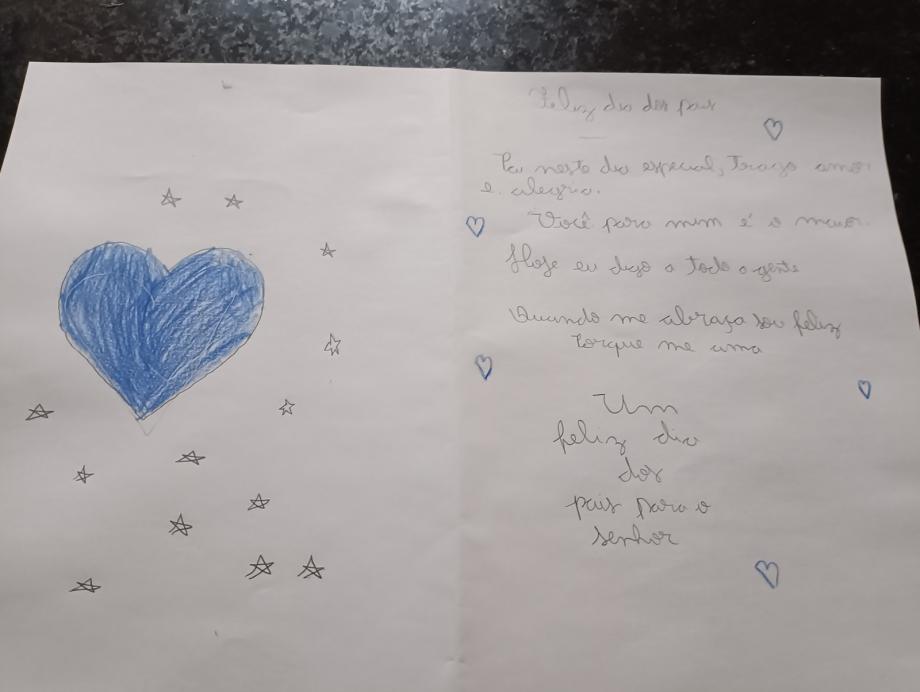 Feliz dia dos pais
Pai neste dia especial, trago amor
e alegria.
Você para mim é o maior.
Hoje eu digo a toda a gente
Quando me abraça sou feliz
Porque me ama
Um
feliz dia
dos
pais para o
senhor